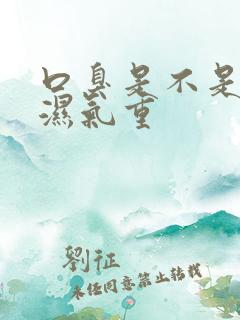 口臭是不是
濕氣重
劉征
未经同意禁止转载